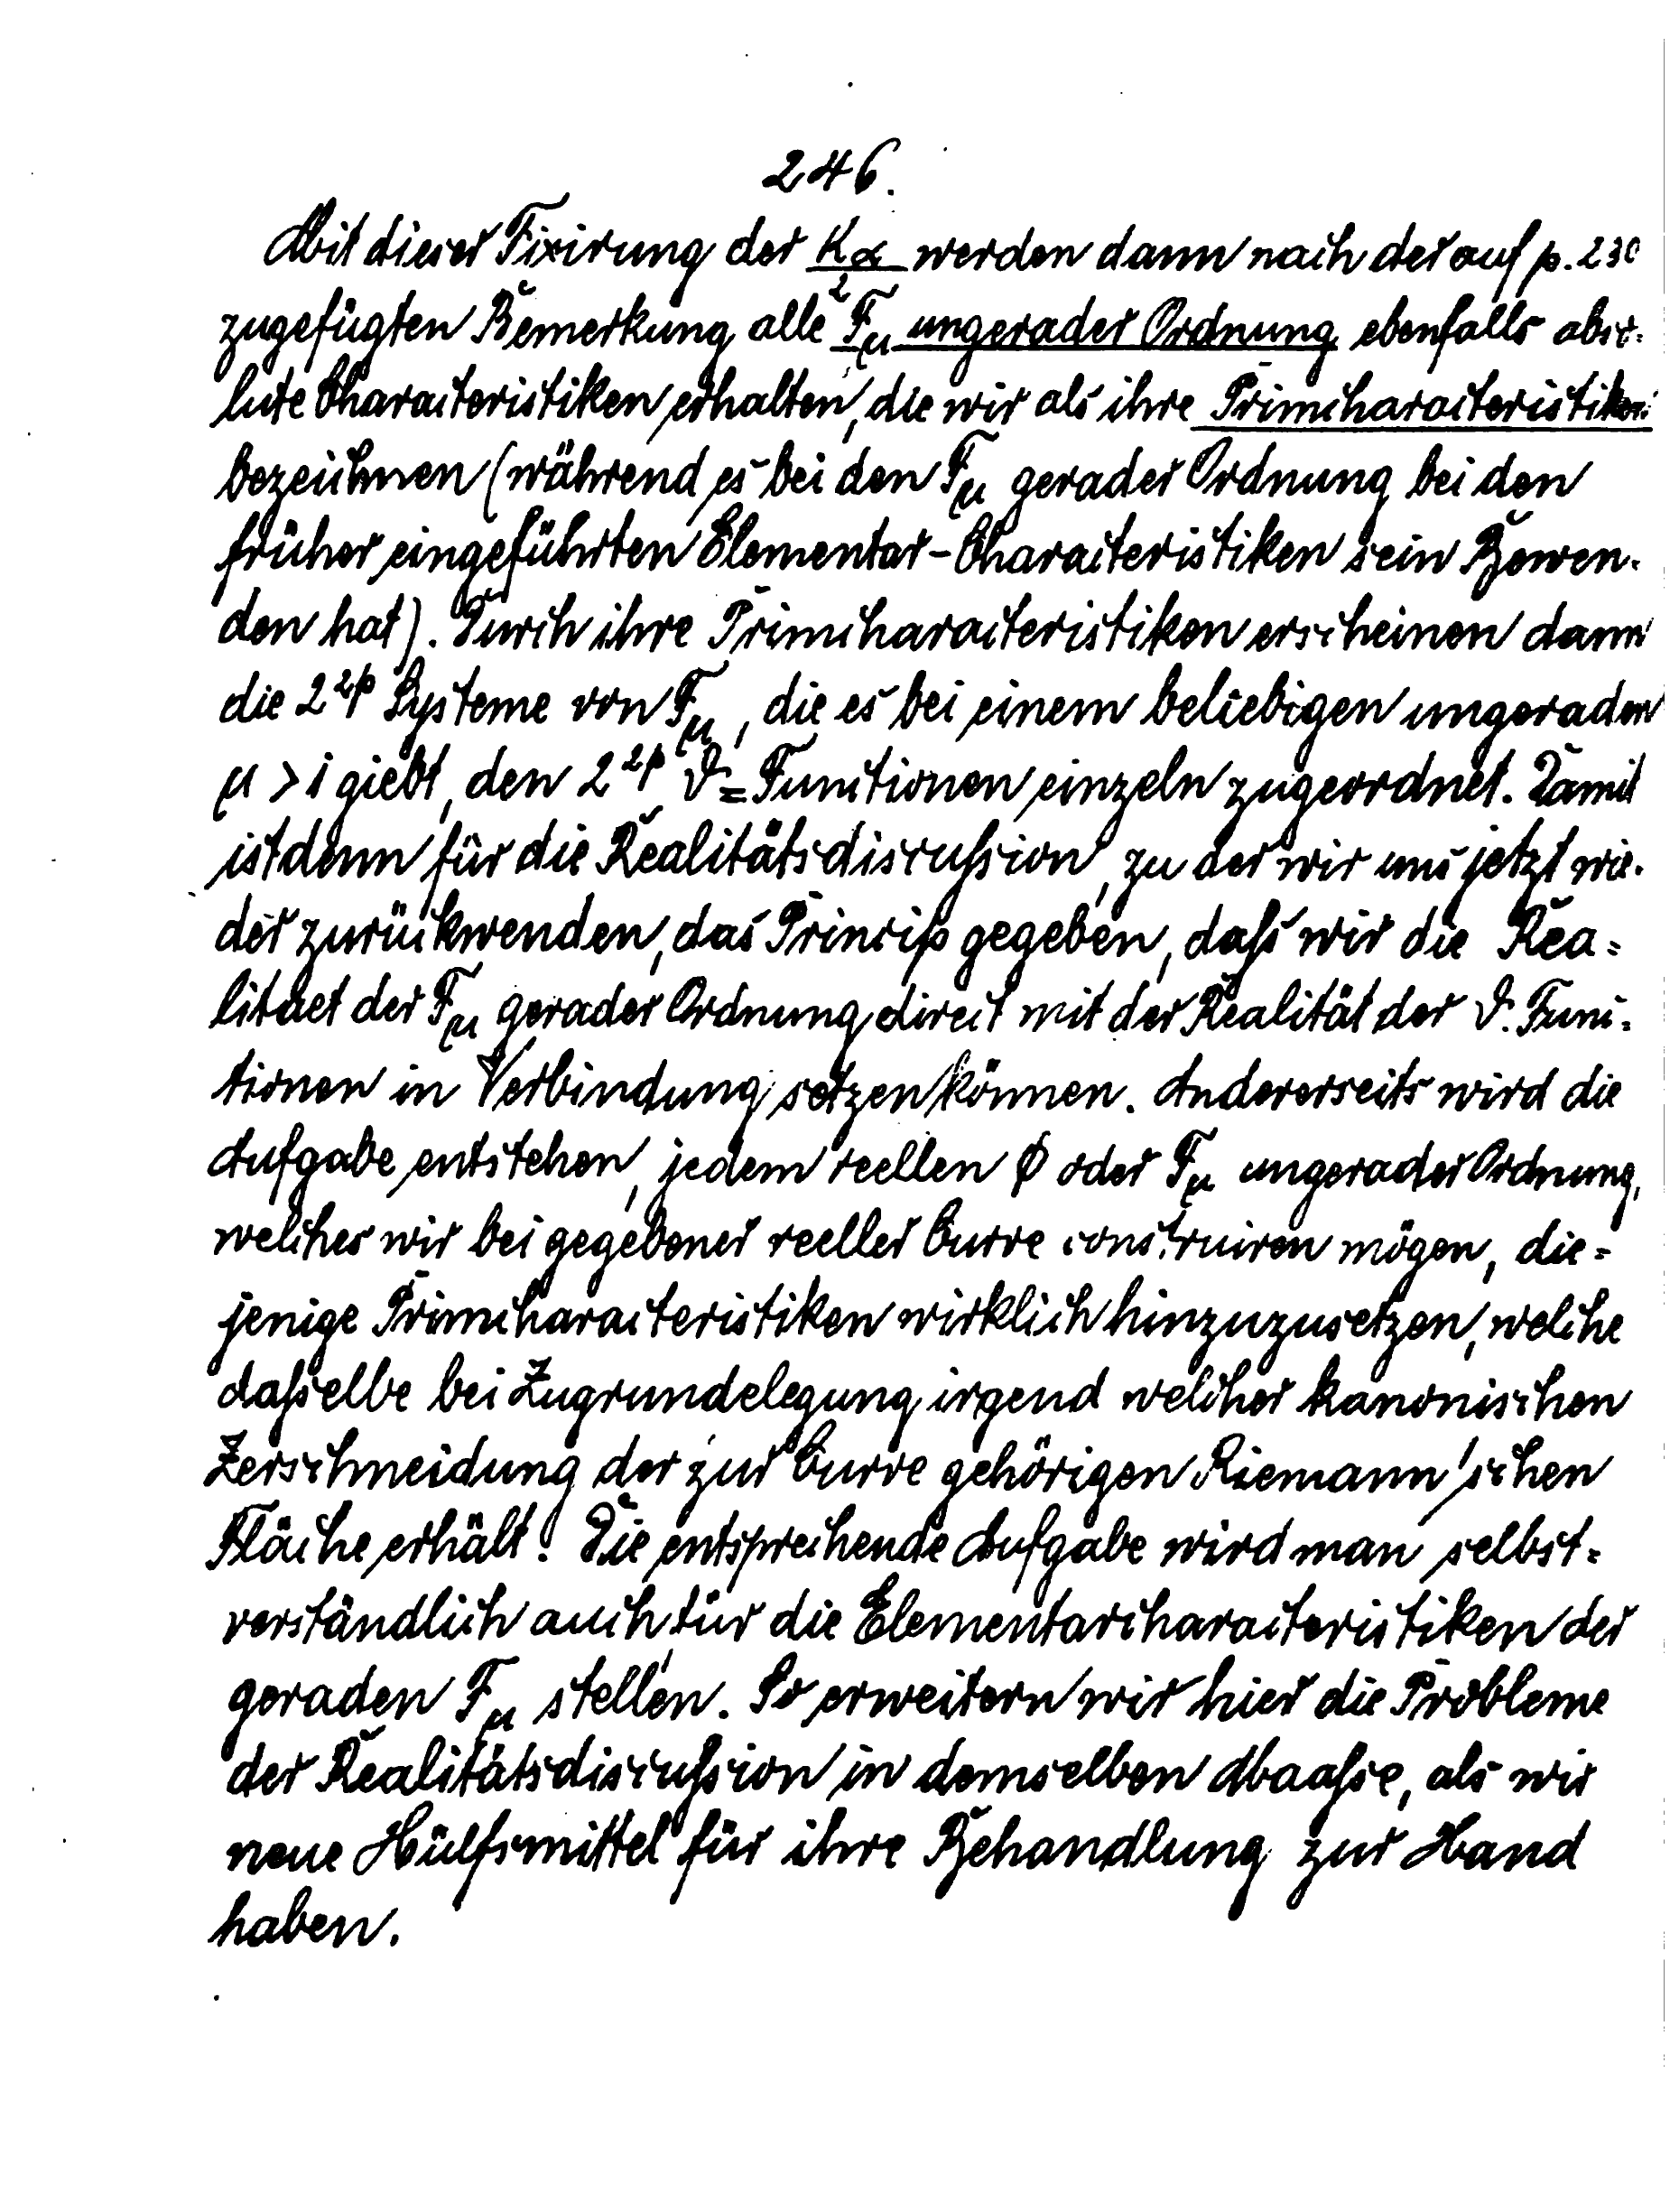 246.
Mit dieser Fixirung der K_α/2 werden dann nach der auf p. 230
zugefügten Bemerkung alle F_μ ungerader Ordnung ebenfalls abso-
lute Characteristiken erhalten, die wir als ihre Primcharacteristiken
bezeichnen (während es bei den F_μ gerader Ordnung bei den
früher eingeführten Elementar-Characteristiken sein Bewen-
den hat). Durch ihre Primcharacteristiken erscheinen dann
die 2^{2p} Systeme von F_μ, die es bei einem beliebigen ungeraden
μ > 1 giebt, den 2^{2p} ϑ=Functionen einzeln zugeordnet. Damit
ist denn für die Realitätsdiscußion, zu der wir uns jetzt wie-
der zurückwenden, das Princip gegeben, daß wir die Rea=
litaet der F_μ gerader Ordnung direct mit der Realität der ϑ. Func-
tionen in Verbindung setzen können. Andererseits wird die
Aufgabe entstehen, jedem reellen ϕ oder F_μ ungerader Ordnung,
welches wir bei gegebener reeller Curve construiren mögen, die=
jenige Primcharacteristiken wirklich hinzuzusetzen, welche
daßelbe bei Zugrundelegung irgend welcher kanonischen
Zerschneidung der zur Curve gehörigen Riemann'schen
Fläche erhält! Die entsprechende Aufgabe wird man selbst=
verständlich auch für die Elementarcharacteristiken der
geraden F_μ stellen. So erweitern wir hier die Probleme
der Realitätsdiscußion in demselben Maaße, als wir
neue Hülfsmittel für ihre Behandlung zur Hand
haben.